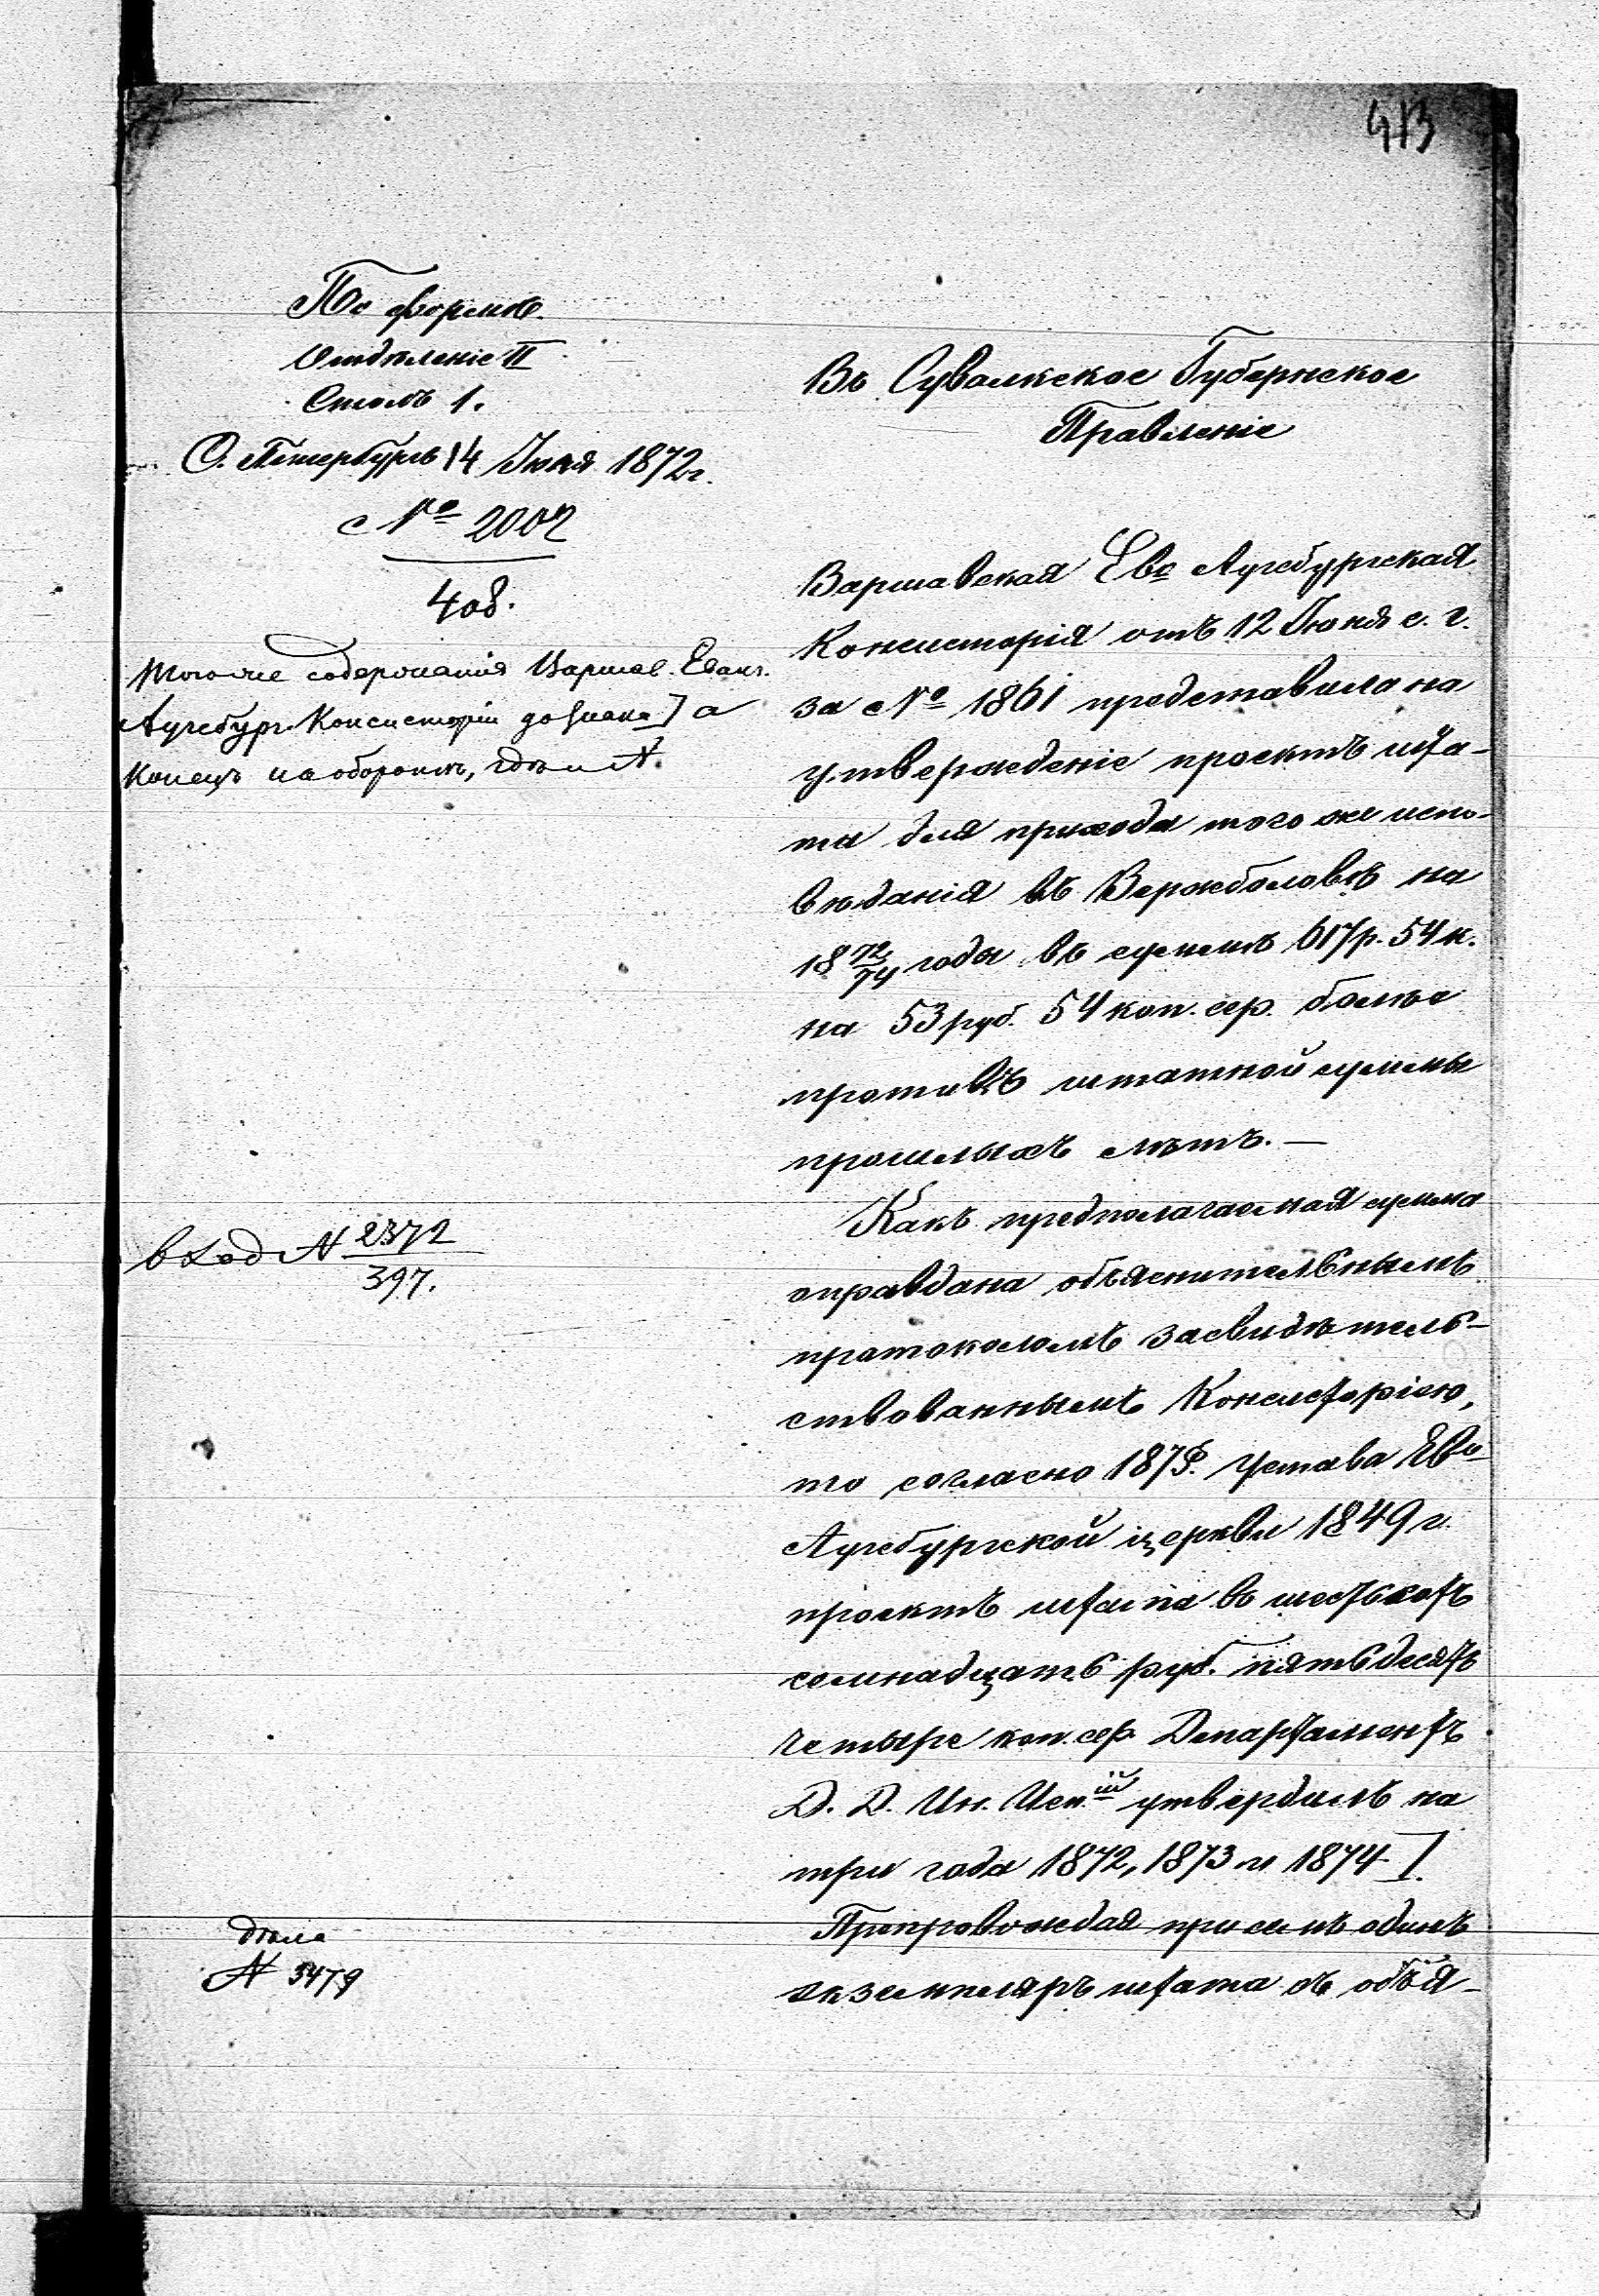 413
По формѣ.
Отдѣленіе II
Столъ 1.
С. Петербургъ 14 Іюля 1872 г.
№ 2002
408.
Того же содержанія Варшав. Еванг.
Аугсбург. Консисторіи до знака ] а
конецъ на оборотѣ, гдѣ N.
вход N 2372
397.
дѣла
N 3479
Въ Сувалкское Губернское
Правленіе
Варшавская Ево Аугсбургская
Консисторія отъ 12 Іюня с. г.
за № 1861 представила на
утвержденіе проектъ шта-
та для прихода того же испо-
вѣданія въ Вержболовѣ на
18 72/74 годы въ суммѣ 617 р. 54 к.
на 53 руб. 54 коп. сер. болѣе
противъ штатной суммы
прошлыхъ лѣтъ. —
Какъ предполагаемая сумма
оправдана объяснительнымъ
протоколомъ засвидѣтель-
ствованнымъ Консисторіею,
то согласно 187 §. Устава Ево
Аугсбургской церкви 1849 г.
проектъ штата въ шестьсотъ
семнадцать руб. пятьдесятъ
четыре коп. сер. Департаментъ
Д. Д. Ин. Исп.ій утвердилъ на
три года 1872, 1873 и 1874 ].
Препровождая при семъ одинъ
экземпляръ штата съ объя-